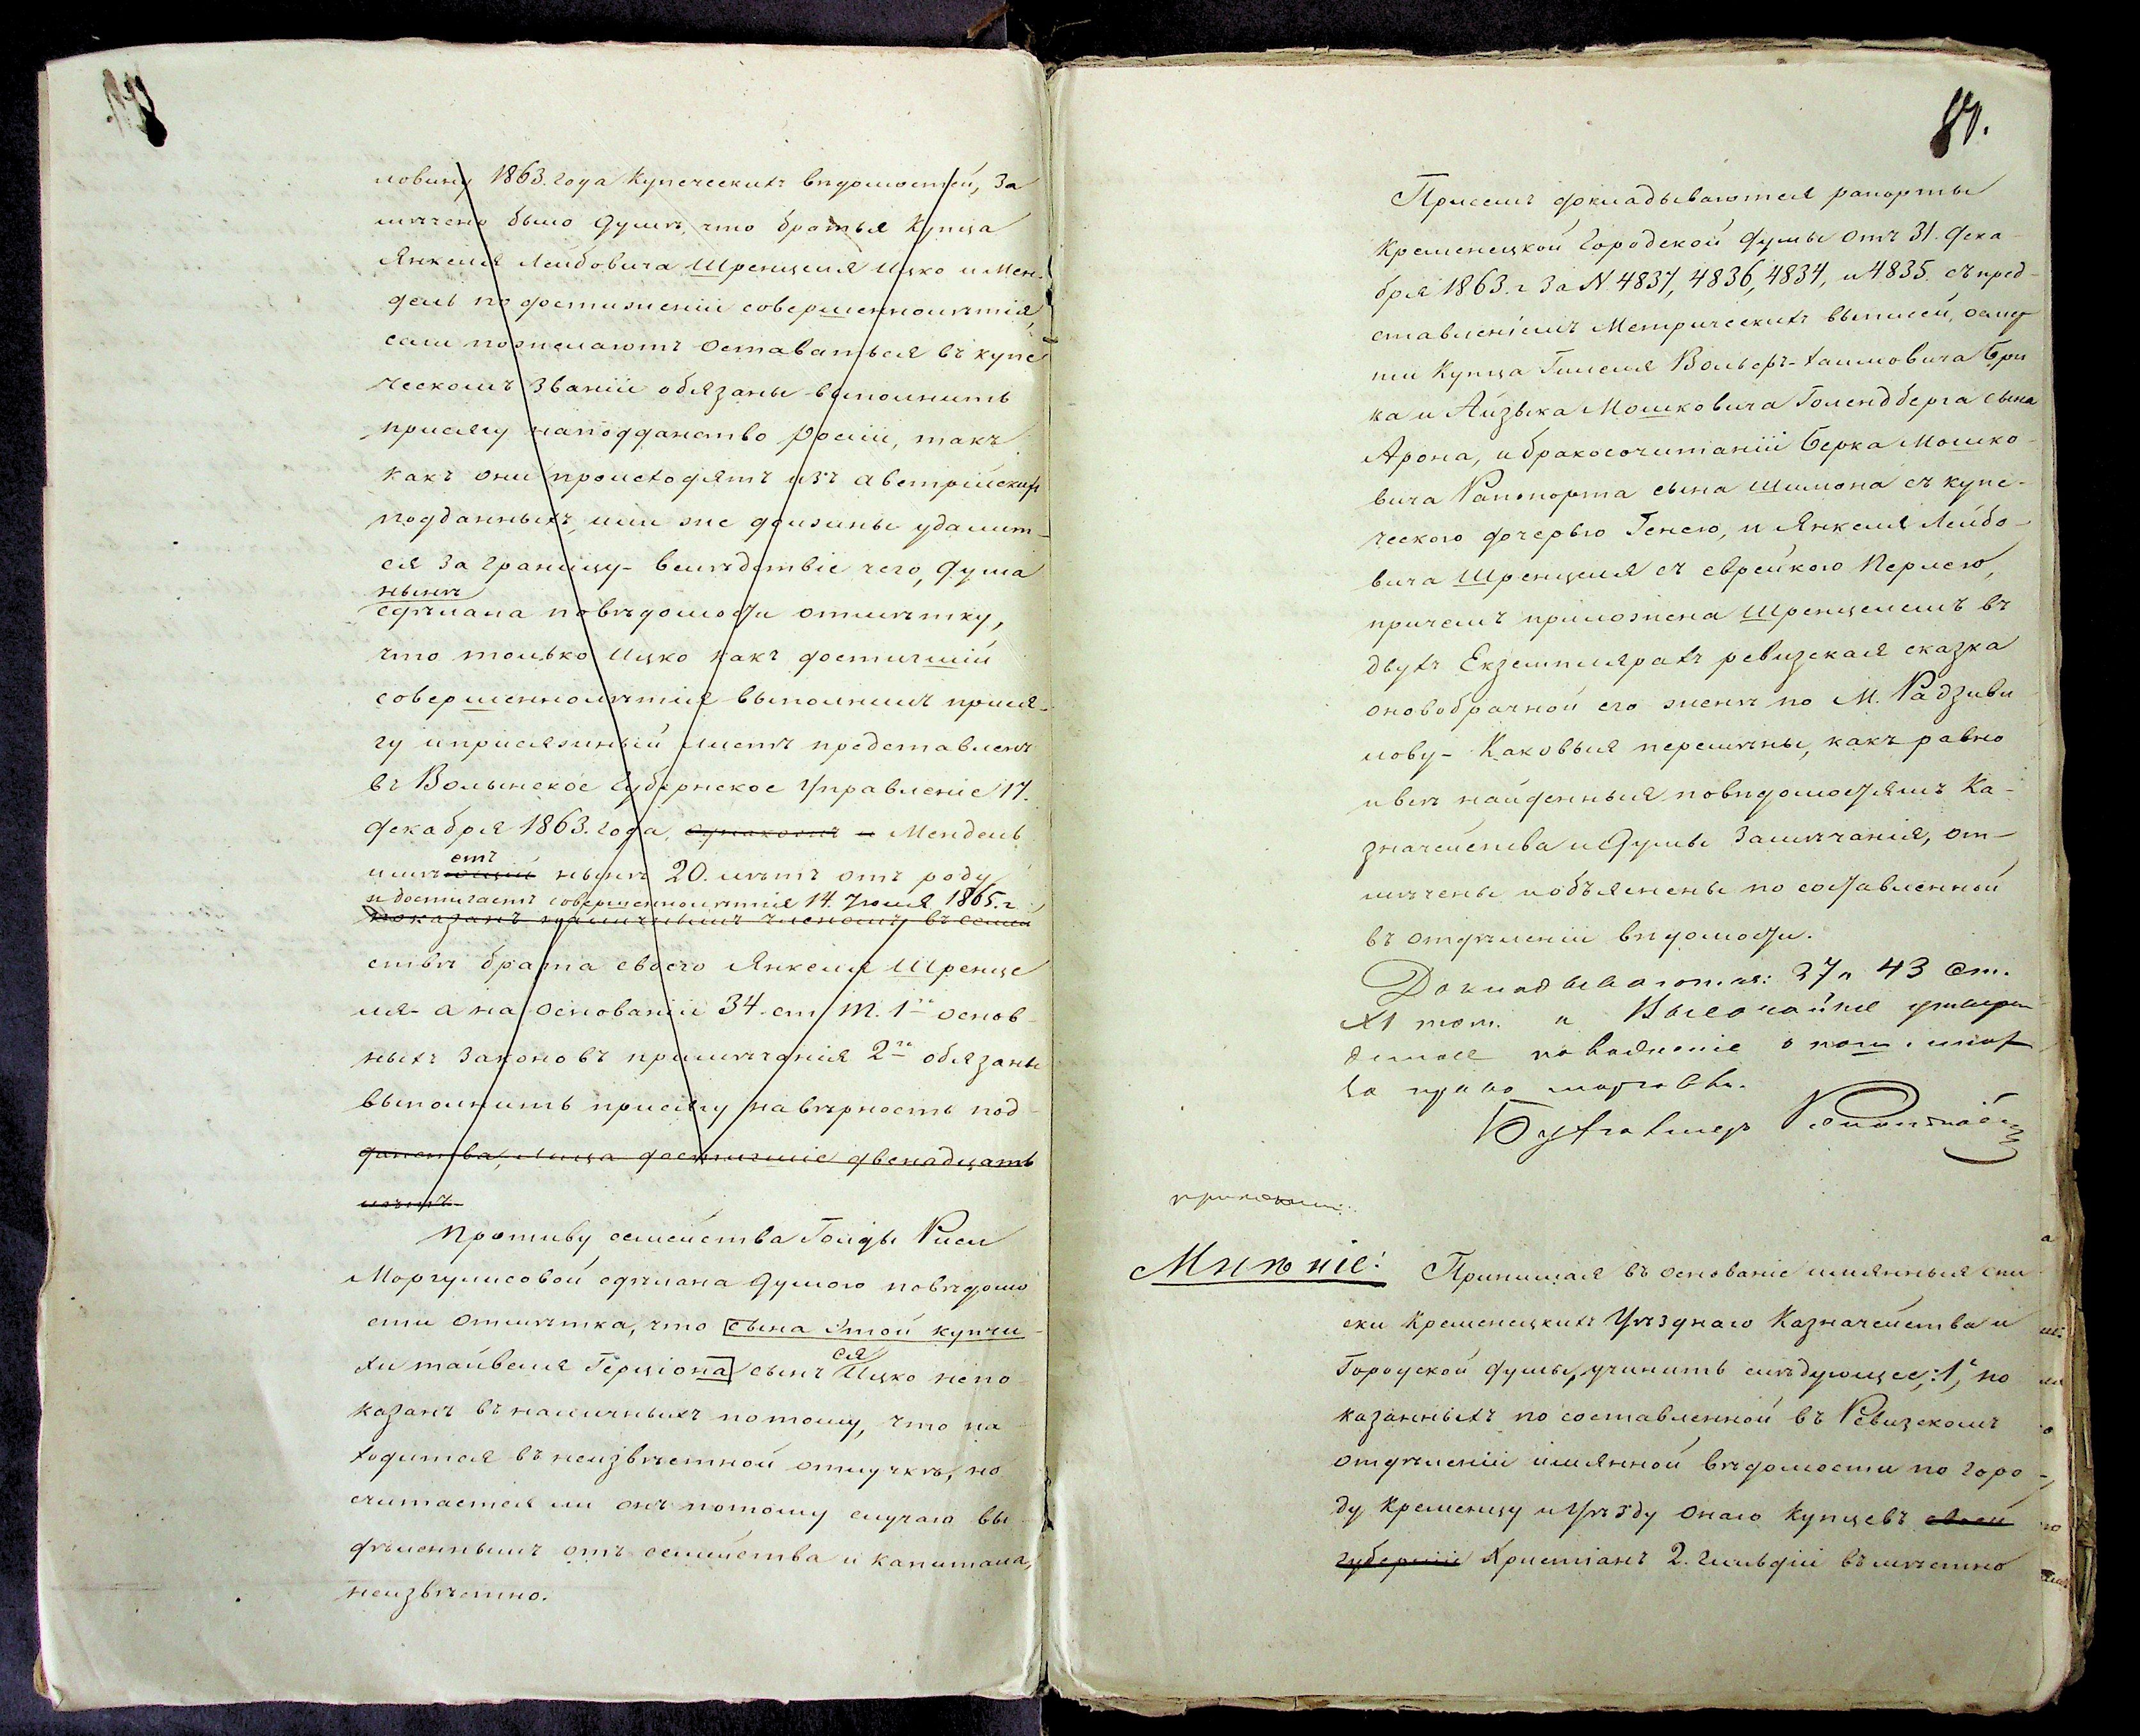 ловину 1863. года купеческихъ вѣдомостей, за
мѣчено было Думѣ, что братья Купца
Янкеля Лейбовича Шренцеля Ицко и Мен-
дель по достиженіи совершеннолѣтія,
если пожелаютъ оставаться въ купе
ческомъ званіи обязаны выполнить
присягу наподданство Росіи, такъ
какъ они происходятъ изъ австрійскихъ
подданныхъ, или же должны удалит-
ся за границу - вслѣдствіе чего, Дума
нынѣ
сдѣлала повѣдомости отмѣтку,
что только Ицко какъ достигшій
совершеннолѣтія выполнилъ прися-
гу иприсяжный листъ представленъ
въ Волынское Губернское Управленіе 17.
декабря 1863. года, и Мендель
етъ
имѣющій нынѣ 20. лѣтъ отъ роду
и достигаетъ совершеннолѣтія 14. Іюля 1865. г.
показанъ наличнымъ членомъ въ семей
ствѣ брата своего Янкеля Шренце
ля - а на основаніи 34. ст. Т. 1го основ-
ныхъ законовъ примѣчанія 2го обязаны
выполнить присягу на вѣрность под-
данства, лица достигшіе двенадцать
лѣтъ.
Противу семейства Гольды Риси
Моргулисовой сдѣлана Думою повѣдомо
сти отмѣтка, что сына этой купчи-
ся
хи тайвеля Герціона сынъ Ицко непо
казанъ въ наличныхъ потому, что на
ходится въ неизвѣстной отлучкѣ, но
считается ли онъ потому случаю вы-
дѣленнымъ отъ семейства и капитала,
неизвѣстно.
Присемъ докладываются рапорты
Кременецкой Городской Думы отъ 31. дека-
бря 1863. г за N 4837, 4836, 4834, и 4835. съ пред-
ставленіемъ Метрическихъ выписей, осмер
ти Купца Гимеля Вольфъ-Хаимовича Бри
ка и Айзыка Мошковича Голендберга сына
Арона, ибракосочитаніи Берка Мошко-
вича Рапопорта сына Шимона съ купе-
ческою дочерью Генею, и Янкеля Лейбо-
вича Шренцеля съ еврейкою Перлею,
причемъ приложена Шренцелемъ въ
двухъ Екземплярахъ ревизская сказка
оновобрачной его женѣ по М. Радзиви
лову - Каковыя перемѣны, какъ равно
ивсѣ найденныя повѣдомостямъ Ка-
значейства и Думы замѣчанія, от-
мѣчены иобъяснены по составленной
въ отдѣленіи вѣдомости.
Докладываются: 37 и 43 ст.
XI том. и Высочайше утверж
денное положеніе о пош.
за право торговли.
Бухгалтеръ
Мнѣніе: Принимая въ основаніе имянныя спи
ски Кременецкихъ Уѣзднаго Казначейства и
Городской Думы, учинить слѣдующее: 1, по
казанныхъ по составленной въ Ревизскомъ
отдѣленіи имянной вѣдомости по горо-
ду Кременцу и Уѣзду онаго Купцевъ своей
губерніи Христіанъ 2. гильдіи въ мѣстно